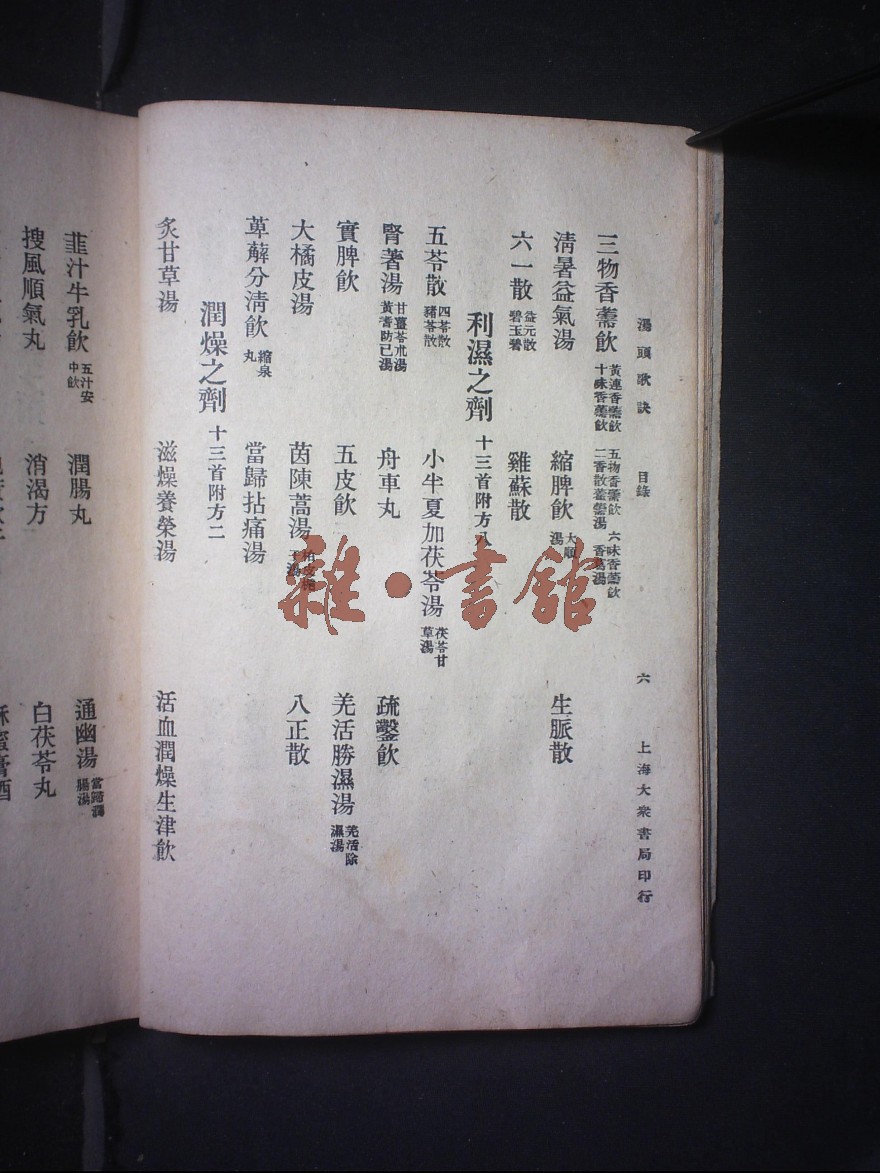 湯頭歌訣 目錄 六 上海大衆書局印行
三物香薷飲 黃連香薷飲 五物香薷飲 六味香薷飲 十味香薷飲 二香散藿薷湯 香葛湯
清暑益氣湯 縮脾飲 大順湯 生脈散
六一散 益元散 碧玉散 雞蘇散
利濕之劑 十三首附方八
五苓散 四苓散 豬苓散 小半夏加茯苓湯 茯苓甘草湯
腎著湯 甘薑苓朮湯 黃耆防己湯 舟車丸 疏鑿飲
實脾飲 五皮飲 羌活勝濕湯 羌活除濕湯
大橘皮湯 茵陳蒿湯 八正散
萆薢分清飲 縮泉丸 當歸拈痛湯
潤燥之劑 十三首附方二
炙甘草湯 滋燥養榮湯 活血潤燥生津飲
韭汁牛乳飲 五汁安中飲 潤腸丸 通幽湯 當歸潤腸湯
搜風順氣丸 消渴方 白茯苓丸
雜·書館